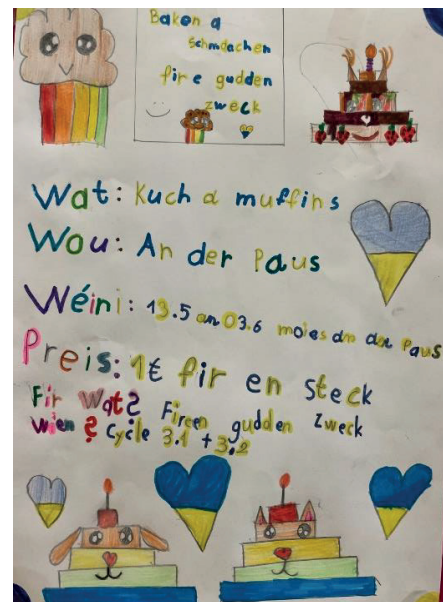 Baken a
schmdachen
fir e gudden
zweck
Wat: Kuch a muffins
Wou: An der Paus
Wéini: 13.5 an 03.6 moies an der Paus
Preis: 1€ fir en steck
Fir Wat? Fireen gudden zweck
wien? Cycle 3.1 + 3.2